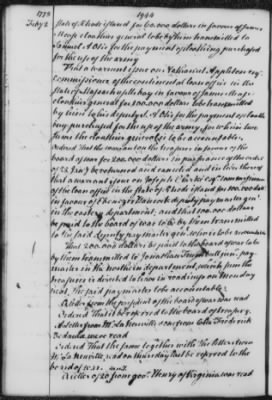 1779 1944
Feby 2 State of Rhode island for 60,000 dollars in favour of James
Mease cloathier general to be by him transmitted to
Samuel A Otis for the payment of cloathing purchased
for the use of the army
That a warrant issue on Nathaniel Appleton esqr
commissioner of the continental loan office in the
state of Massachusetts bay in favour of James Mease
cloathier general for 200,000 dollars to be transmitted
by him to his deputy S. A Otis for the payment of cloath
ing purchased for the use of the army, for which two
sums the cloathier general is to be accountable.
Ordered That the warrant on the treasurer in favour of the
board of war for 200,000 dollars in pursuance of the order
of be returned and canceled and in lieu thereof
that a warrant issue on Joseph Clarke esqr commissioner
of the loan office in the state of Rhode island for 100,000 dol
lars in favour of Ebenezer Hancock deputy pay master genl
in the eastern department; and that 100,000 dollars
be paid to the board of war to be by them transmitted
to the said deputy pay master genl who is to be accountable
That 200,000 dollars be paid to the board of war to be
by them transmitted to Jonathan Trumbull jun. pay
master in the northern department, which sum the
treasurer is directed to have in readiness on Monday
next, the said pay master to be accountable.
A letter from the president of the board of war was read
Ordered That it be referred to the board of treasury.
A letter from M. La Neuville & one from
were read
Ordered That the same together with the letter from
M. La Neuville, read on thursday last be referred to the
board of war.
A letter of 20 from govr Henry of Virginia was read